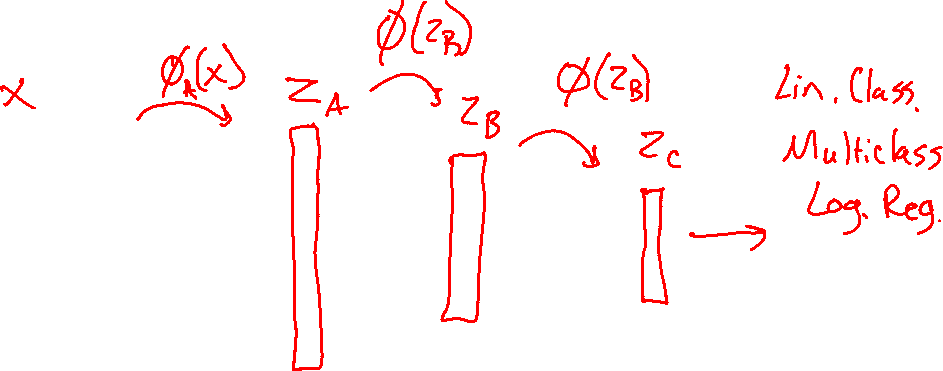 x
ϕ_A(x)
z_A
ϕ(z_B)
z_B
ϕ(z_B)
z_C
Lin. Class.
Multiclass
Log. Reg.